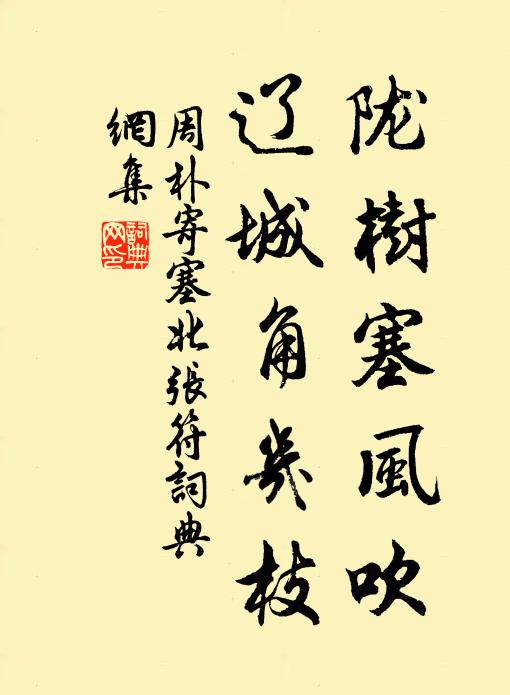 陇樹塞風吹
辽城角幾枝
周朴寄塞北張符詞典
網集
詞典网印